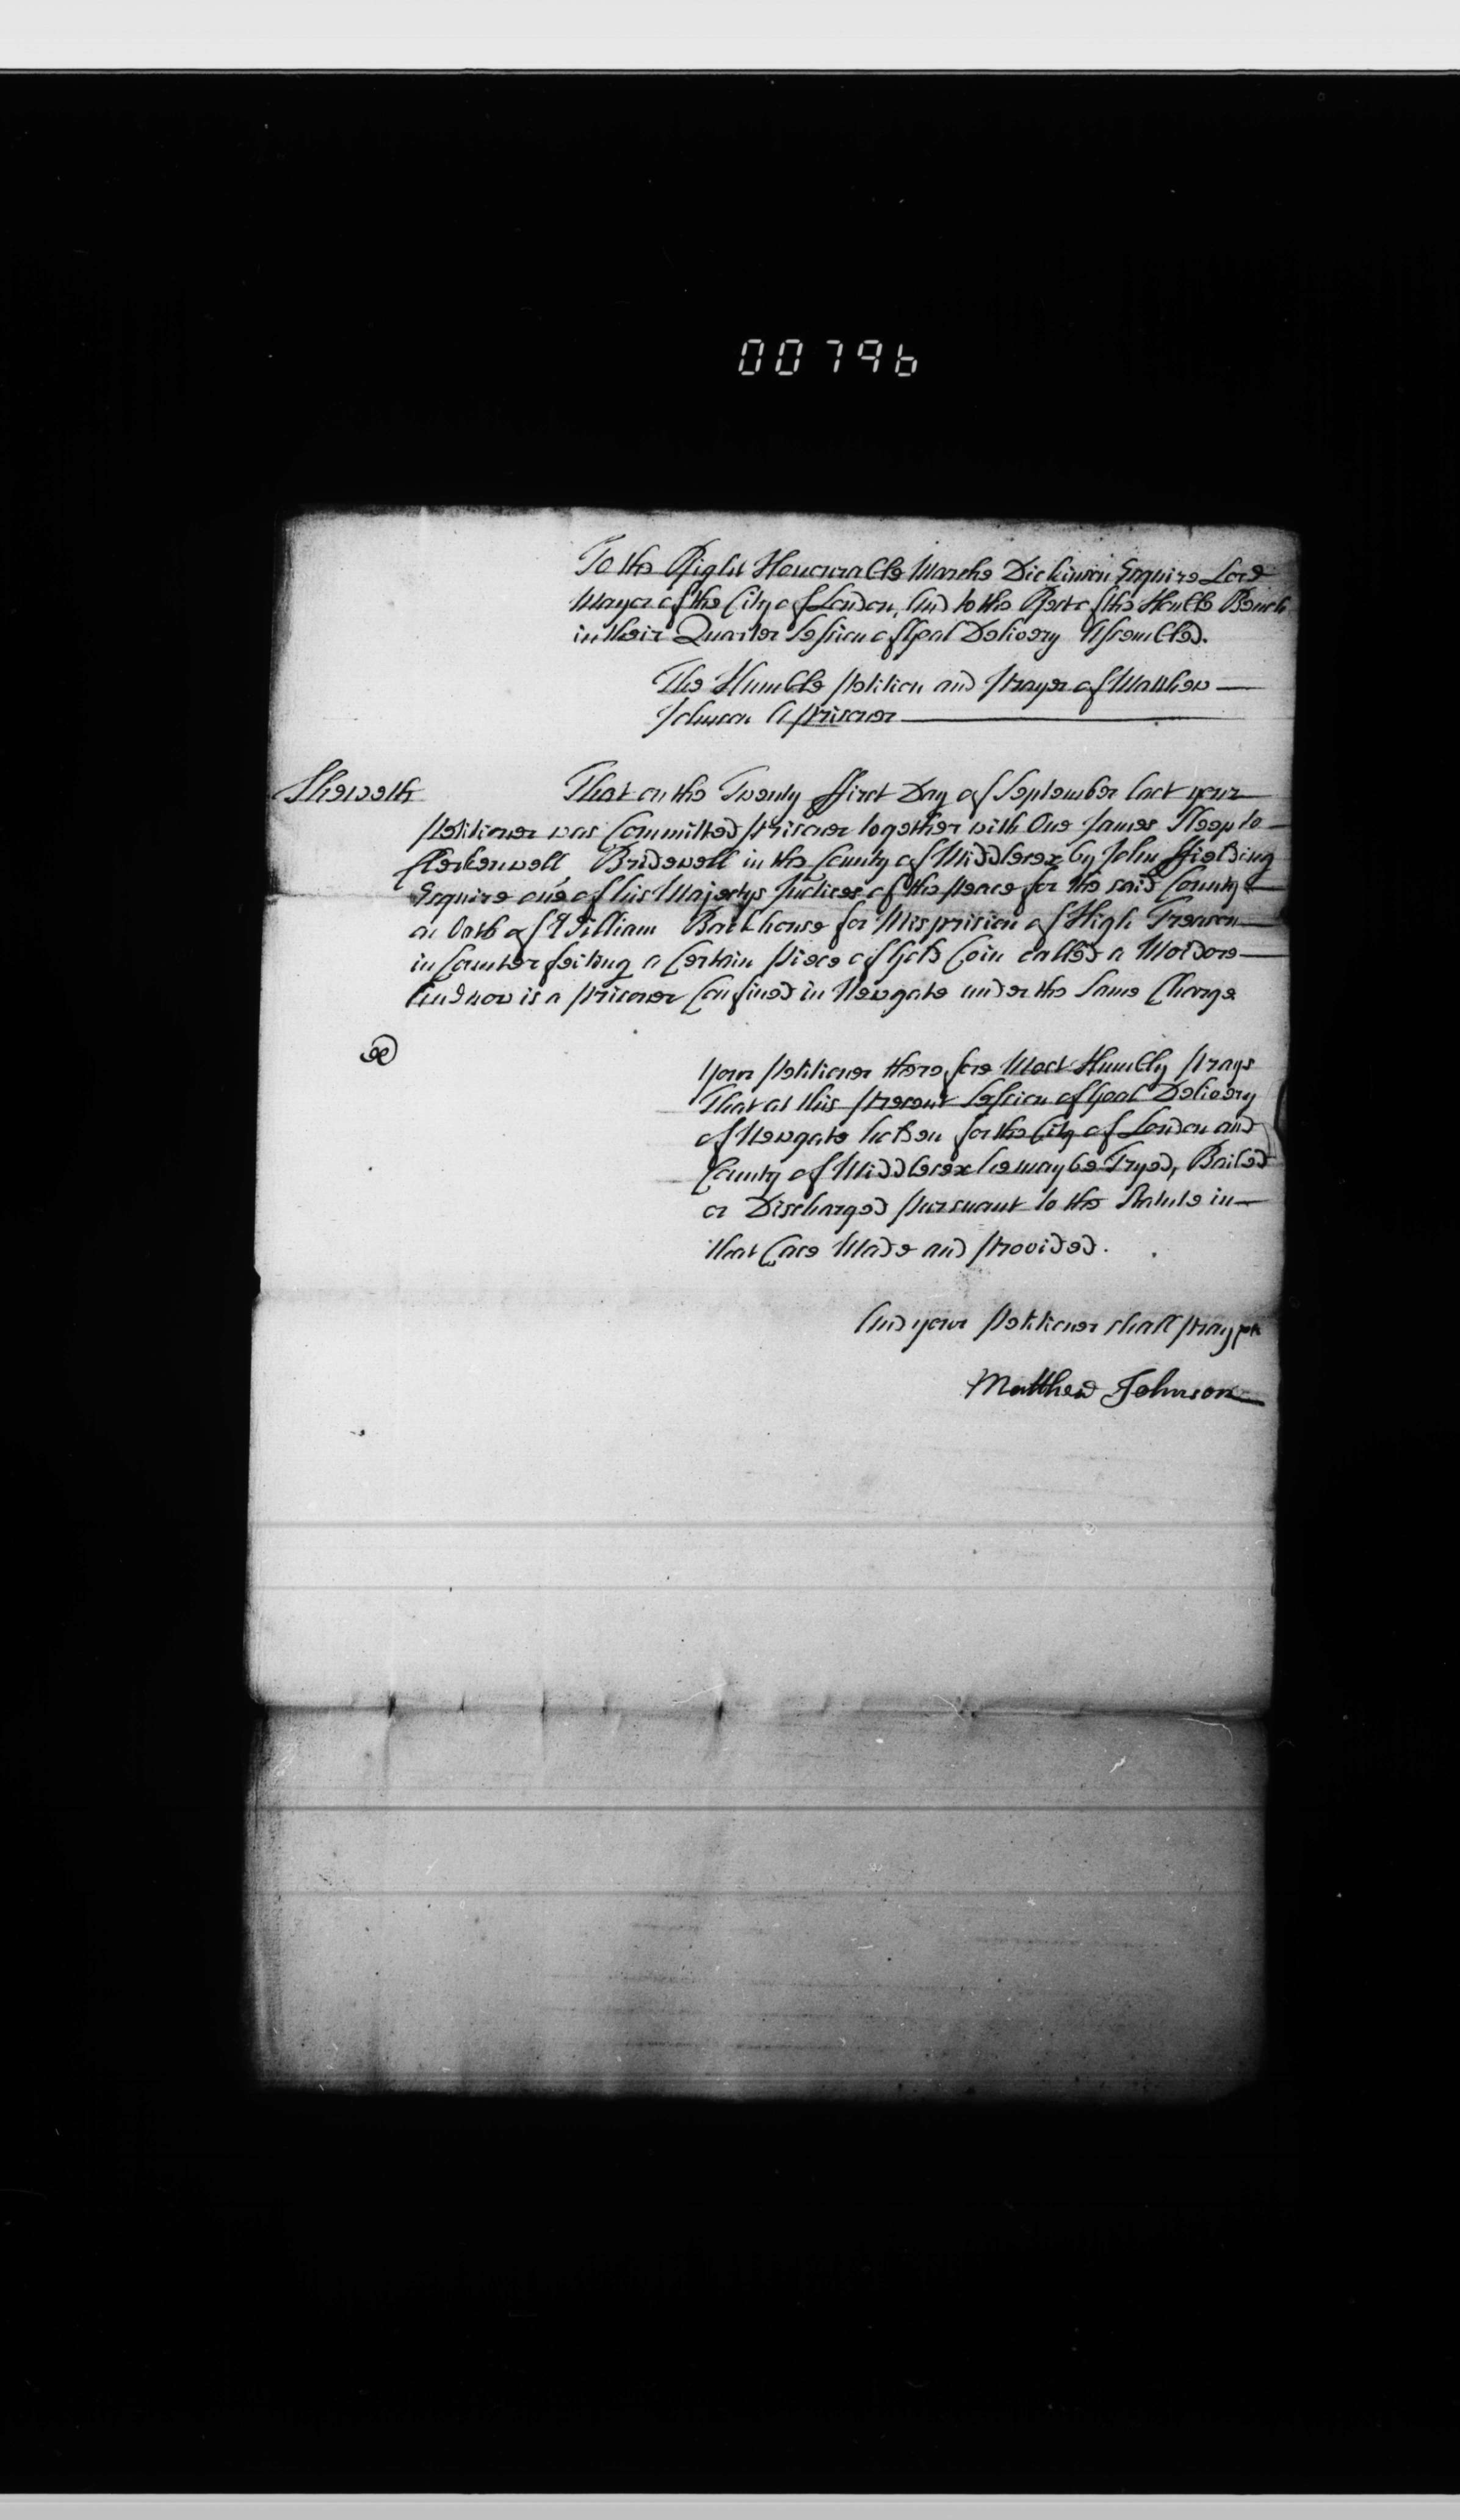 00796
To the Right Honourable Marshe Dickinson Esquire Lord
Mayor of the City of London, And to the Rest of the Honble Bench
in their Quarter Session of Goal Delivery Assembled.
The Humble Petition and Prayer of Matthew
Johnson A Prisoner
Sheweth That on the Twenty ffirst Day of September last your
Petitioner was Committed Prisoner together with One James Sleep to
Clerkenwell Bridewell in the County of Middlesex by John ffielding
Esquire one of his Majestys Justices of the Peace for the said County
on Oath of William Backhouse for Misprision of High Treason
in Counterfeiting a Certain Piece of Gold Coin called a Moidore
And now is a Prisoner Confined in Newgate under the Same Charge
Your Petitioner therefore Most Humbly Prays
That at this Present Session of Goal Delivery
of Newgate holden for the City of London and
County of Middlesex he may be Tryed, Bailed
or Discharged Pursuant to the Statute in
that Case Made and Provided.
And your Petitioner shall Pray
Matthew Johnson